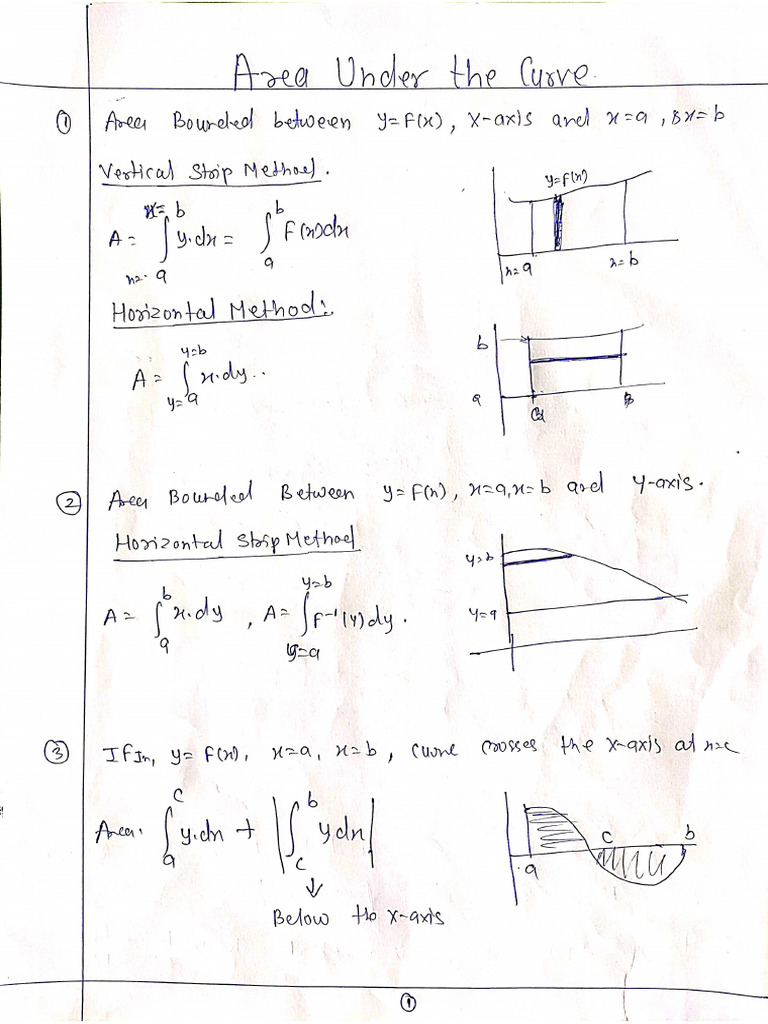 Area Under the Curve.
① Area Bounded between y=F(x), X-axis and x=a, & x=b
Vertical Strip Method.
y=F(x)
x= b
A= ∫ y.dx = ∫ F(x)dx
x= a
b
a
x=a
x=b
Horizontal Method:
y=b
A= ∫ x.dy..
y=a
b
a
a
B
② Area Bounded Between y=F(x), x=a, x=b and Y-axis.
Horizontal Strip Method
y=b
y=a
A= ∫ x.dy , A= ∫ F⁻¹(y)dy.
b
a
y=b
y=a
③ If In, y=F(x), x=a, x=b, curve crosses the x-axis at x=c
Area. ∫ y.dx + |∫ y dx|
c
a
b
c
↓
Below the x-axis
a
c
b
①